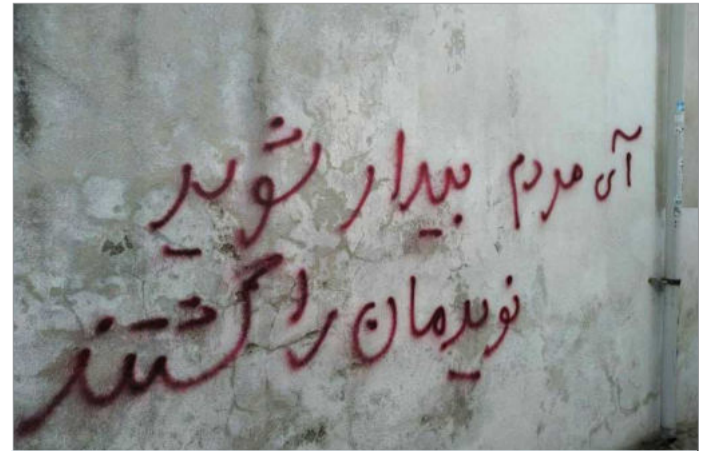 آی مردم بیدار شوید
نویدمان را کشتند